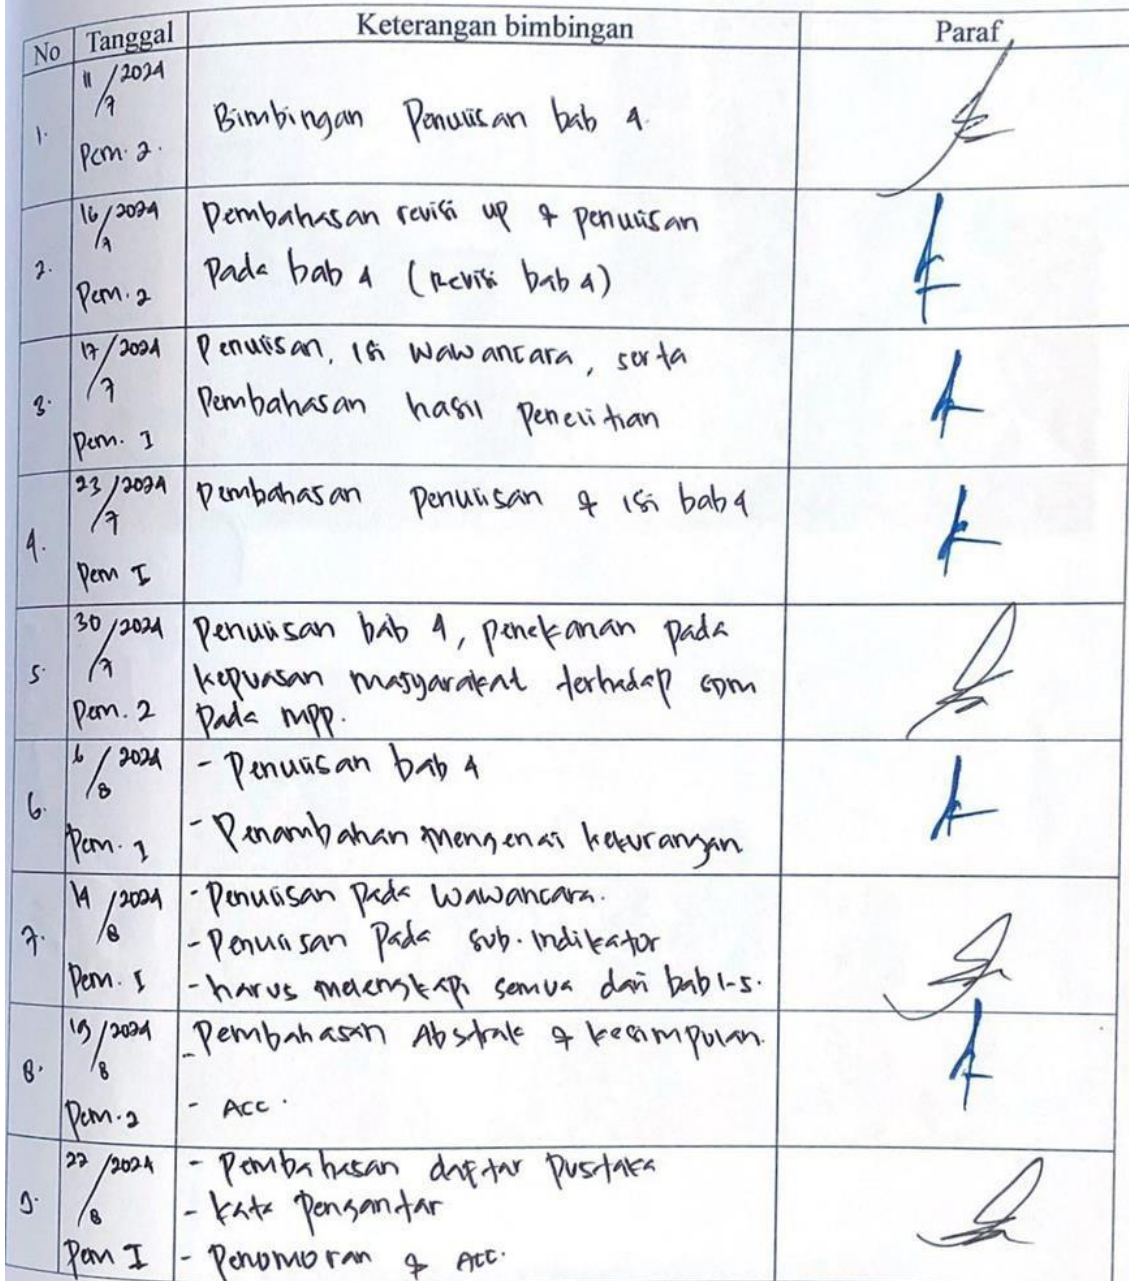 No Tanggal Keterangan bimbingan Paraf
1. 11/2024
/7
Pem. 2. Bimbingan Penulisan bab 4.
2. 16/2024
/7
Pem. 2 Pembahasan revisi up & penulisan
Pada bab 4 (Revisi bab 4)
3. 17/2024
/7
Pem. I Penulisan, isi wawancara, serta
Pembahasan hasil penelitian
4. 23/2024
/7
Pem I Pembahasan penulisan & isi bab 4
5. 30/2024
/7
Pem. 2 Penulisan bab 4, penekanan pada
kepuasan masyarakat terhadap SDM
Pada MPP.
6. 6/2024
/8
Pem. 1 - Penulisan bab 4
- Penambahan mengenai kekurangan
7. 14/2024
/8
Pem. I - Penulisan pada wawancara.
- Penulisan Pada sub. indikator
- harus melengkapi semua dari bab 1-5.
8. 19/2024
/8
Pem. 2 - Pembahasan Abstrak & kesimpulan.
- Acc.
9. 22/2024
/8
Pem I - Pembahasan daftar Pustaka
- kata Pengantar
- Penomoran & Acc.